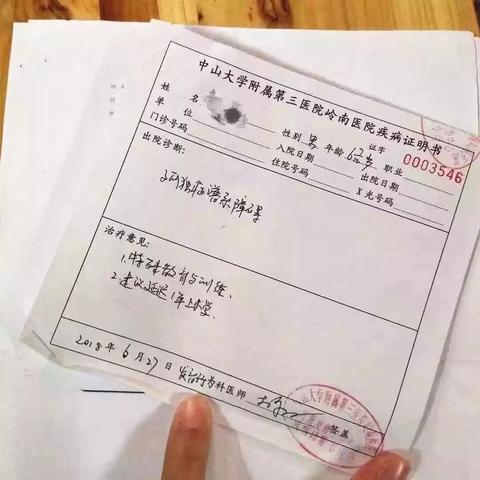 中山大学附属第三医院岭南医院疾病证明书
姓名 性别 男 年龄 6岁 证字 0003546
单位 职业
门诊号码 入院日期 出院日期
住院号码 X光号码
出院诊断：
孤独症谱系障碍
治疗意见：
1.特殊教育与训练、
2.建议延迟1年上小学.
2018年6月27日 发育行为科医师 签盖